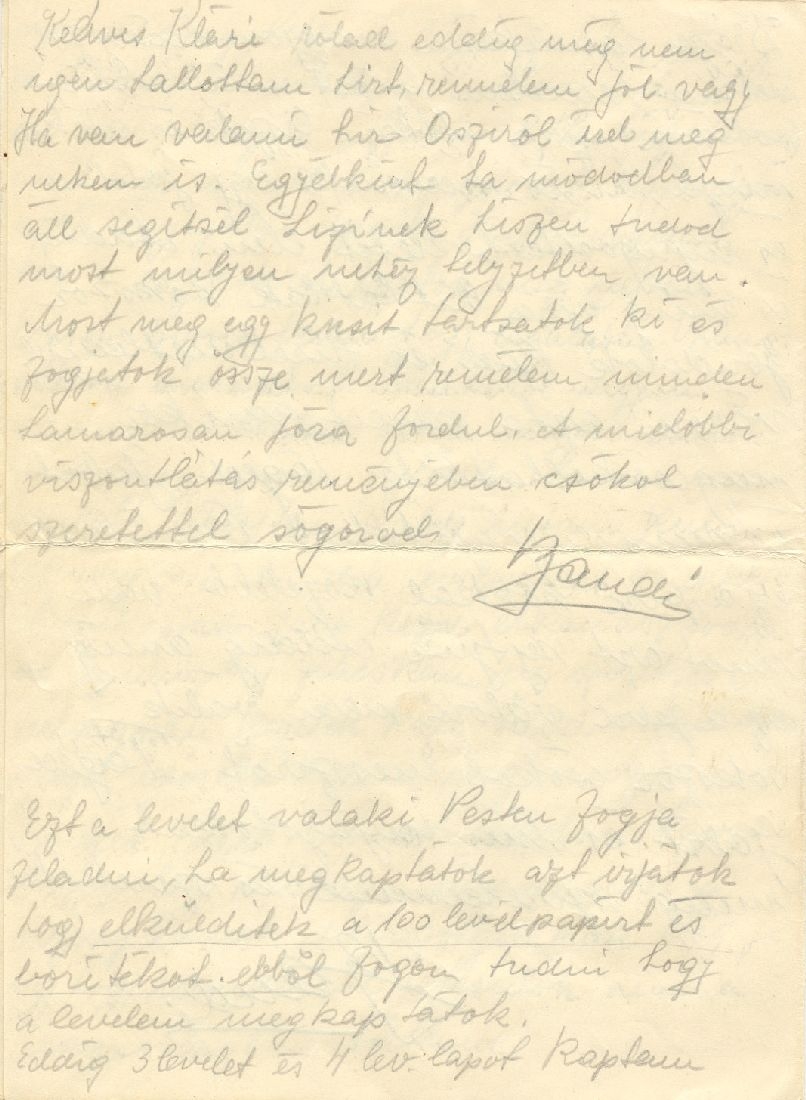 Kedves Klári rólad eddig még nem
igen hallottam hirt, remélem jól vagy
Ha van valami hir Osziról ird meg
nekem is. Egyébként ha módodban
áll segitsél Lipinek hiszen tudod
most milyen nehéz helyzetben van.
Most még egy kicsit tartsatok ki és
fogjatok össze mert remélem minden
hamarosan jóra fordul. A mielőbbi
viszontlátás reményében csókol
szeretettel sógorod
Bandi
Ezt a levelet valaki Pesten fogja
feladni, ha megkaptátok azt irjátok
hogy elkülditek a 100 levélpapirt és
boritékot. ebből fogom tudni hogy
a levelem megkaptátok.
Eddig 3 levelet és 4 lev. lapot kaptam